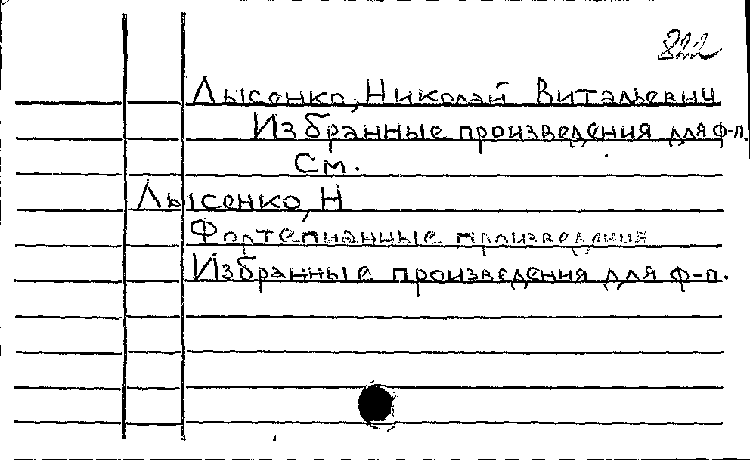 822
Лысенко, Николай Витальевич
Избранные произведения для ф-п.
См.
Лысенко, Н
Фортепианные произведения
Избранные произведения для ф-п.